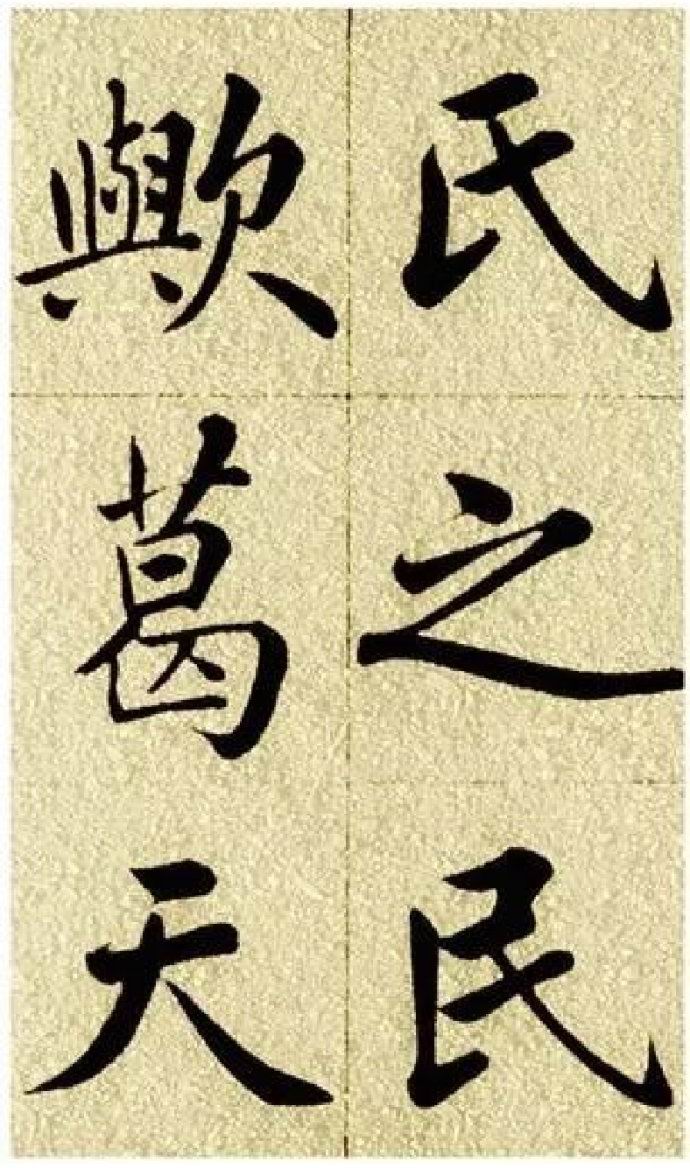 氏之民
歟葛天